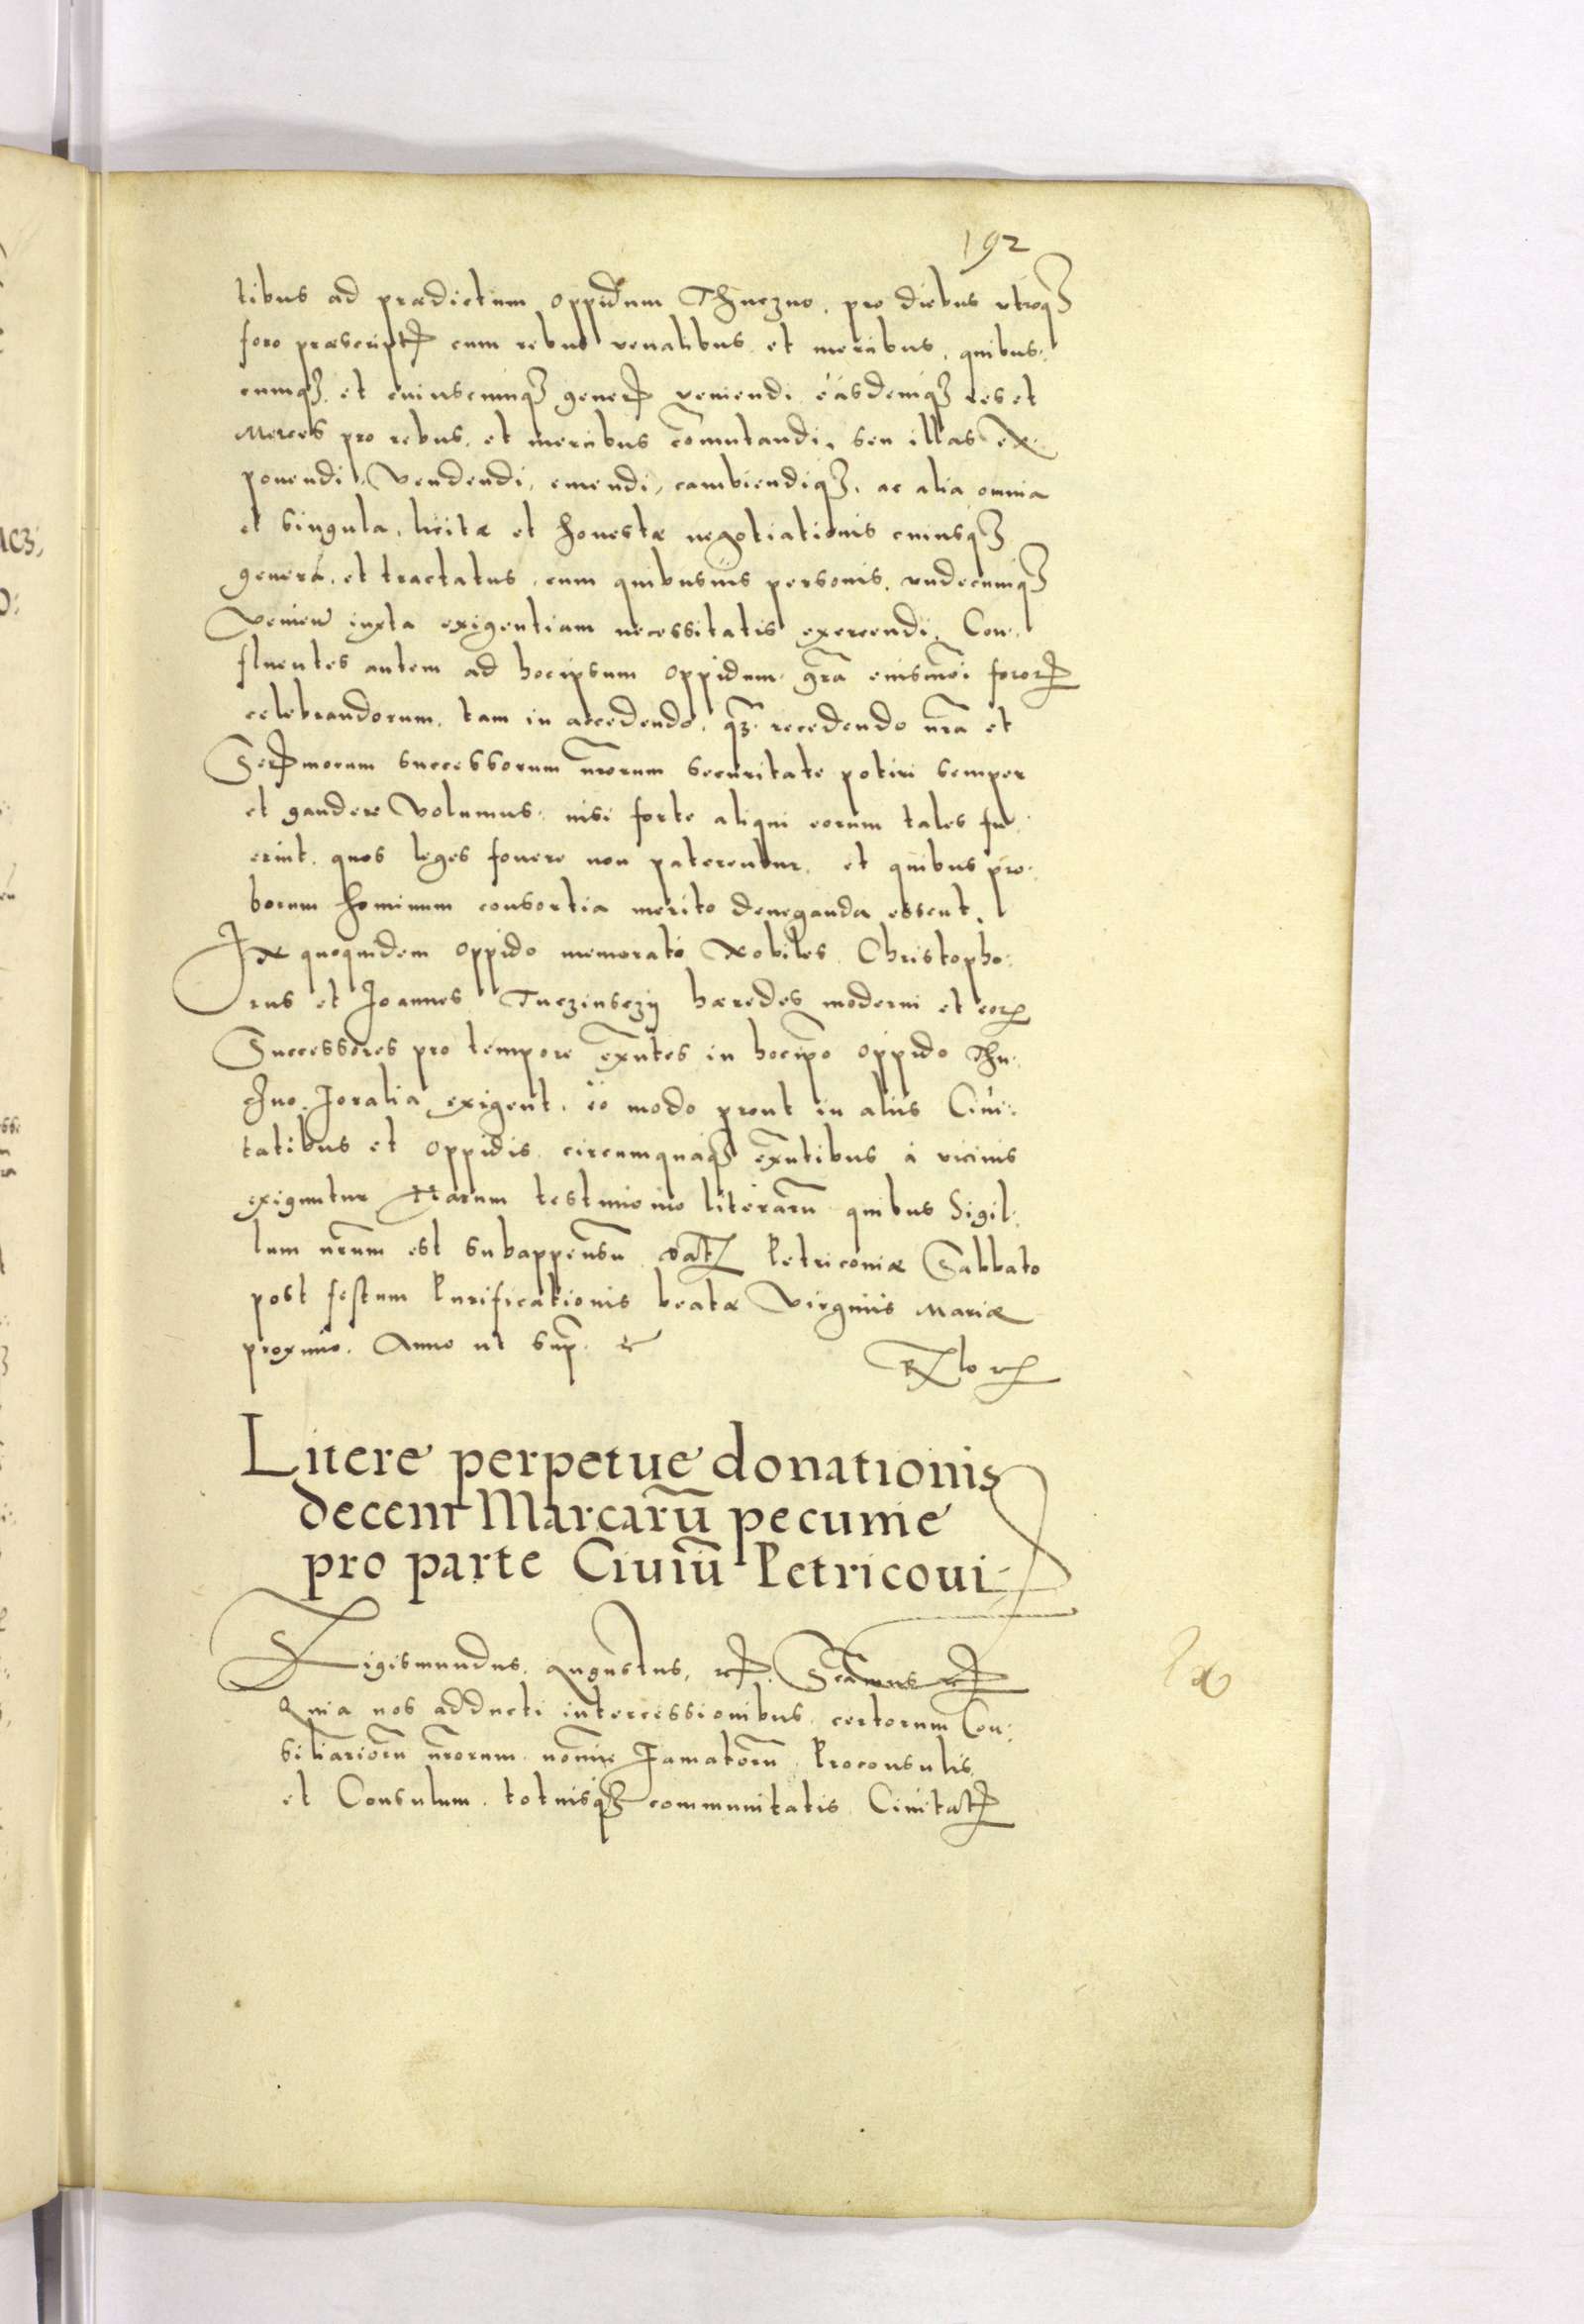 192
tibus ad prædictum oppidum Thuczno, pro diebus utroq3
foro præscript cum rebus venalibus et mercibus, quibus:
cumq3 et cuiuscumq3 gener veniendi easdemq3 res et
Merces pro rebus et mercibus cōmutandi, seu illas ex:
ponendi, Vendendi, emendi, cambiendiq3, ac alia omnia
et singula, licitæ et honestæ negotiationis cuiusq3
genera, et tractatus, cum quibusuis personis, undecumq3
venien iuxta exigentiam necessitatis exercendi. Con:
fluentes autem ad hocipsum oppidum grā eiusmōi foror
celebrandorum, tam in accedendo, q3 recedendo nrā et
Sermorum successorum nrōrum securitate potiri semper
et gaudere Volumus, nisi forte aliqui eorum tales fu:
erint, quos leges fouere non paterentur, et quibus pro:
borum hominum consortia merito deneganda essent.
In quoquidem oppido memorato Nobiles Christopho:
rus et Joannes Tuczinsczÿ hæredes moderni et eor
Successores pro tempore exn̄tes in hocip̄o oppido Thu:
czno foralia exigent, eo modo prout in aliis Ciui:
tatibus et oppidis circumquaq3 exn̄tibus à vicinis
exiguntur Harum testimonio literarū quibus Sigil:
lum nrūm est subappensū Dat Petricouiæ Sabbato
post festum Purificationis beatæ Virginis Mariæ
proximo. Anno ut sup̄.
Litere perpetue donationis
decem Marcarū pecunie
pro parte Ciuiū Petricoui
Sigismundus Augustus, Scāmus
Quia nos adducti intercessionibus certorum Con:
siliariorū nrōrum nōmīe Famatorū Proconsulis
et Consulum totiusq3 communitatis Ciuitat